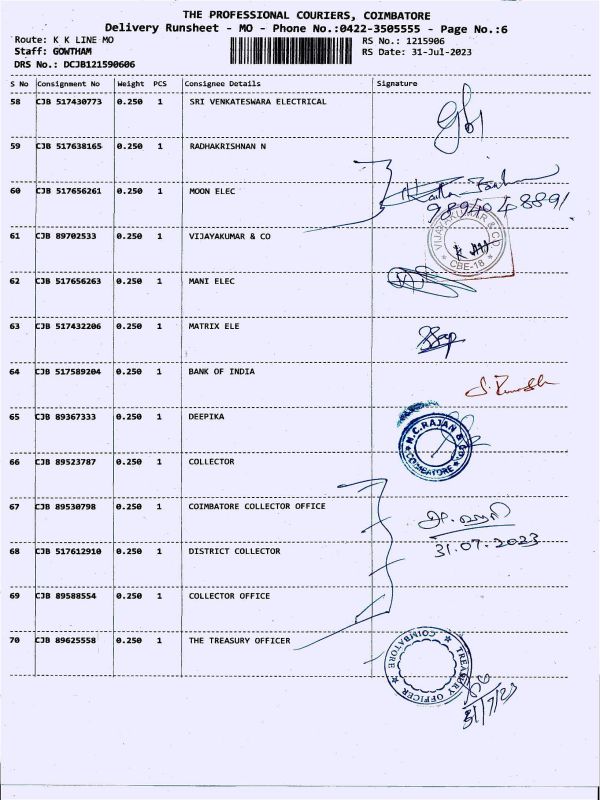 THE PROFESSIONAL COURIERS, COIMBATORE
Delivery Runsheet - MO - Phone No.:0422-3505555 - Page No.:6
Route: K K LINE MO
Staff: GOWTHAM
DRS No.: DCJB121590606
RS No.: 1215906
RS Date: 31-Jul-2023
S No Consignment No Weight PCS Consignee Details Signature
58 CJB 517430773 0.250 1 SRI VENKATESWARA ELECTRICAL
59 CJB 517638165 0.250 1 RADHAKRISHNAN N
60 CJB 517656261 0.250 1 MOON ELEC
9894048891
61 CJB 89702533 0.250 1 VIJAYAKUMAR & CO
VIJAYAKUMAR & CO
CBE-18
62 CJB 517656263 0.250 1 MANI ELEC
63 CJB 517432206 0.250 1 MATRIX ELE
64 CJB 517589204 0.250 1 BANK OF INDIA
65 CJB 89367333 0.250 1 DEEPIKA
N.C.RAJAN & CO
COIMBATORE
66 CJB 89523787 0.250 1 COLLECTOR
67 CJB 89530798 0.250 1 COIMBATORE COLLECTOR OFFICE
68 CJB 517612910 0.250 1 DISTRICT COLLECTOR
31.07.2023
69 CJB 89588554 0.250 1 COLLECTOR OFFICE
70 CJB 89625558 0.250 1 THE TREASURY OFFICER
TREASURY OFFICER
COIMBATORE
31/7/23